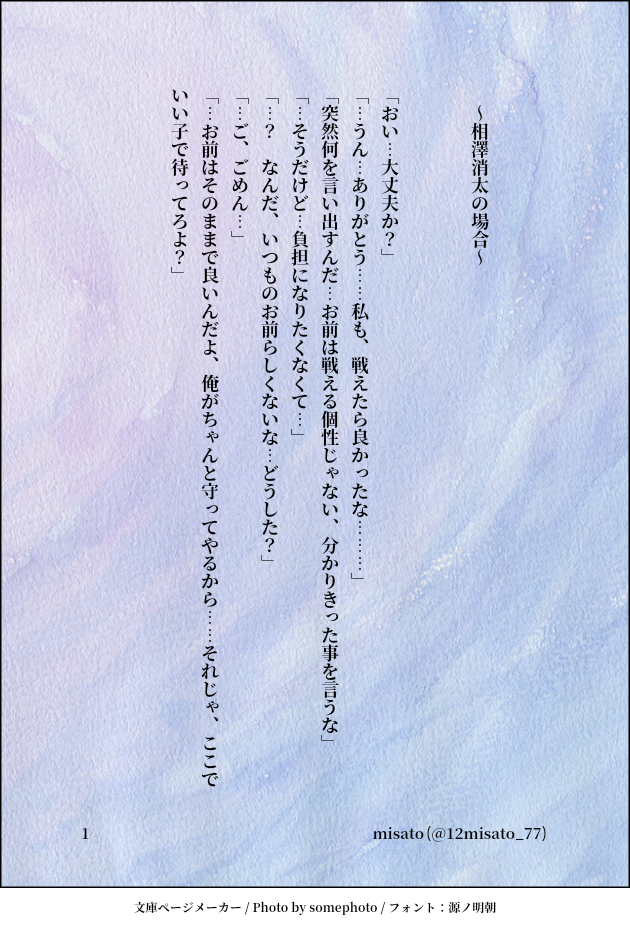 ～相澤消太の場合～
「おい…大丈夫か？」
「…うん…ありがとう……私も、戦えたら良かったな………」
「突然何を言い出すんだ…お前は戦える個性じゃない、分かりきった事を言うな」
「…そうだけど…負担になりたくなくて…」
「…？　なんだ、いつものお前らしくないな…どうした？」
「…ご、ごめん…」
「…お前はそのままで良いんだよ、俺がちゃんと守ってやるから……それじゃ、ここで
いい子で待ってろよ？」
misato(@12misato_77)
1
文庫ページメーカー / Photo by somephoto / フォント：源ノ明朝